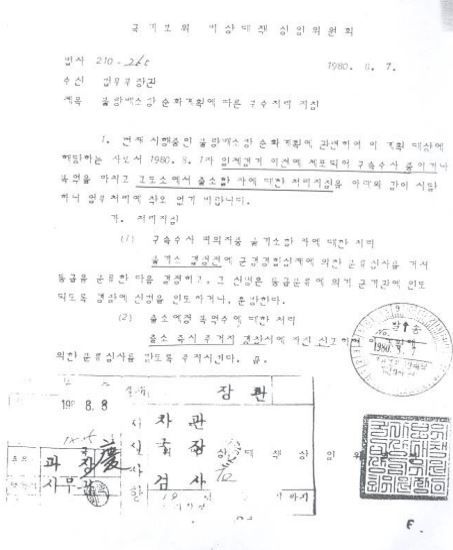 국가보위 비상대책 상임위원회
법사 210-265
1980. 8. 7.
수신 법무부장관
제목 불량배소탕 순화계획에 따른 구속처리 지침
1. 현재 시행중인 불량배소탕 순화계획에 관련하여 이 계획 대상에
해당하는 자로서 1980. 8. 1자 일제검거 이전에 체포되어 구속수사 중이거나
복역을 마치고 교도소에서 출소할 자에 대한 처리지침을 아래와 같이 시달
하니 업무처리에 착오 없기 바랍니다.
가. 처리지침
(1) 구속수사 피의자중 불기소할 자에 대한 처리
불기소 결정전에 군검경합심제에 의한 분류심사를 거쳐
등급을 분류한 다음 결정하고, 그 신병은 등급분류에 의거 군기관에 인도
되도록 경찰에 신병을 인도하거나, 훈방한다.
(2) 출소예정 복역수에 대한 처리
출소 즉시 주거지 경찰서에 자진 신고하여
의한 분류심사를 받도록 주지시킨다. 끝.
발송
No.
1980. 8. 7
198 8. 8
장관
차관
국장
과장
검사
사무관
상대책상임위원